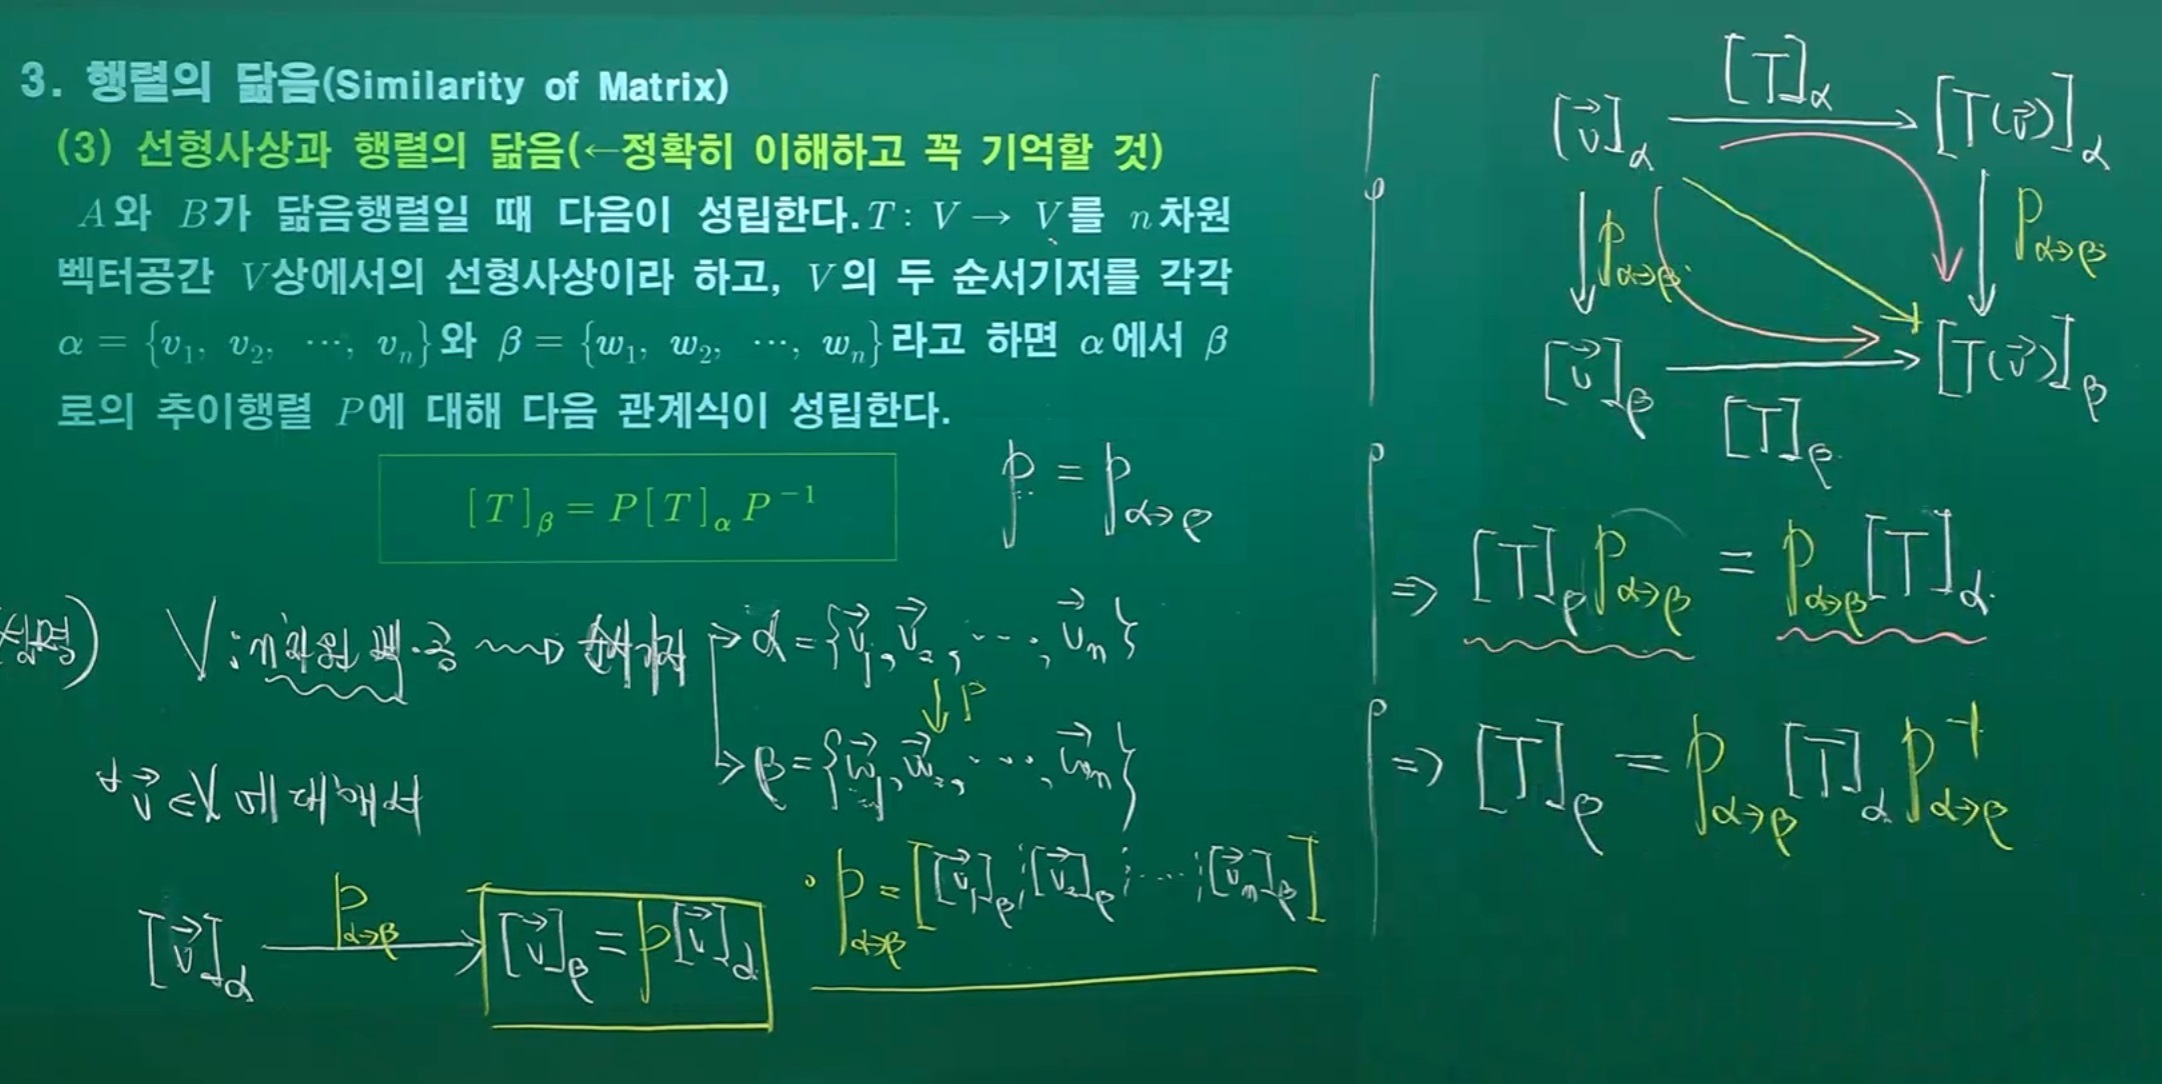 3. 행렬의 닮음(Similarity of Matrix)
(3) 선형사상과 행렬의 닮음(←정확히 이해하고 꼭 기억할 것)
A와 B가 닮음행렬일 때 다음이 성립한다. T: V → V를 n차원
벡터공간 V상에서의 선형사상이라 하고, V의 두 순서기저를 각각
α = {v₁, v₂, ⋯, vₙ}와 β = {w₁, w₂, ⋯, wₙ}라고 하면 α에서 β
로의 추이행렬 P에 대해 다음 관계식이 성립한다.
[T]_β = P[T]_α P⁻¹
P = P_{α→β}
(설명) V : n차원 벡.공 ⇝ 순서기저 → α = {v⃗₁, v⃗₂, ⋯, v⃗ₙ}
↓ P
→ β = {w⃗₁, w⃗₂, ⋯, w⃗ₙ}
∀v⃗ ∈ V 에 대해서
[v⃗]_α → P_{α→β} [v⃗]_β = P[v⃗]_α
• P_{α→β} = [[v⃗₁]_β ⋮ [v⃗₂]_β ⋮ ⋯ ⋮ [v⃗ₙ]_β]
[T]_α
[v⃗]_α → [T(v⃗)]_α
↓ P_{α→β} ↓ P_{α→β}
[v⃗]_β → [T(v⃗)]_β
[T]_β
⇒ [T]_β P_{α→β} = P_{α→β} [T]_α
⇒ [T]_β = P_{α→β} [T]_α P⁻¹_{α→β}